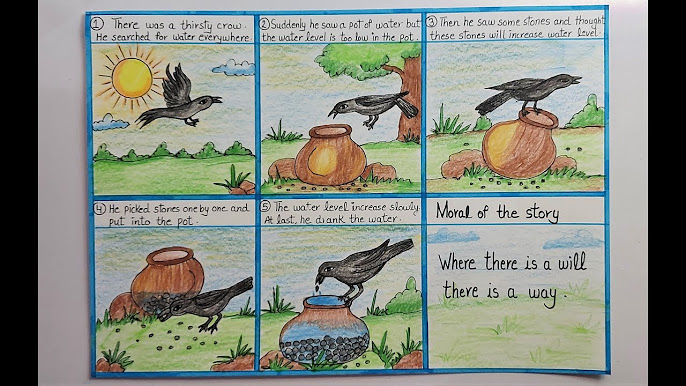 ① There was a thirsty crow.
He searched for water everywhere.
② Suddenly he saw a pot of water but
the water level is too low in the pot.
③ Then he saw some stones and thought
these stones will increase water level.
④ He picked stones one by one and
put into the pot.
⑤ The water level increase slowly.
At last, he drank the water.
Moral of the story
Where there is a will
there is a way.